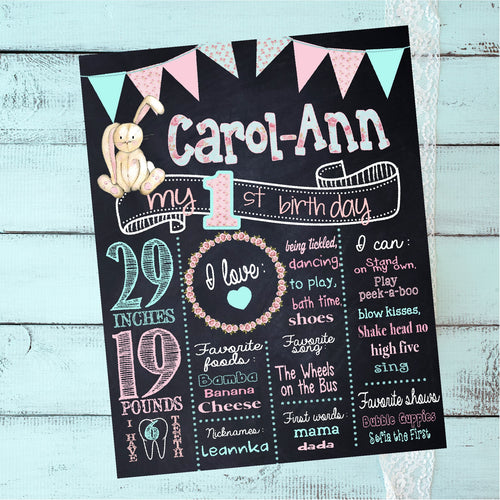 Carol-Ann
my 1st birthday
29
INCHES
19
POUNDS
I HAVE
TEETH
I love:
being tickled,
dancing
to play,
bath time,
shoes
I can:
Stand
on my own,
Play
peek-a-boo
blow kisses,
Shake head no
high five
sing
Favorite
foods:
Bamba
Banana
Cheese
Favorite
song:
The Wheels
on the Bus
Nicknames:
leannka
First words:
mama
dada
Favorite shows
Bubble Guppies
Sofia the First